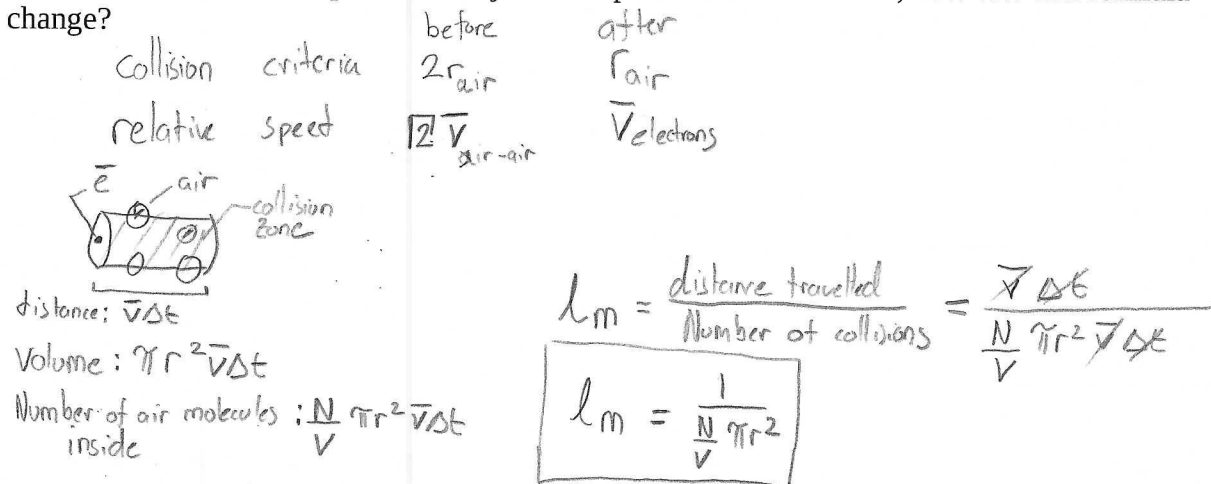 change?
before after
collision criteria 2r_air r_air
relative speed √2 v̄_air-air v̄_electrons
ē air
collision zone
distance: v̄Δt
Volume: πr²v̄Δt
Number of air molecules inside : N/V πr² v̄Δt
l_m = distance travelled / Number of collisions = v̄ Δt / (N/V πr² v̄ Δt)
l_m = 1 / (N/V πr²)